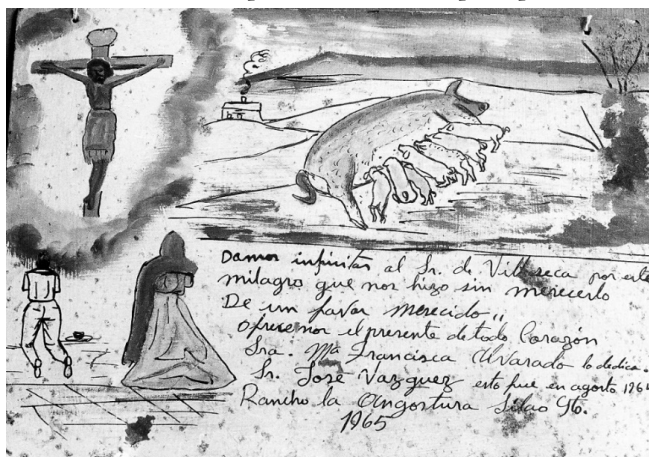 Damos infinitas al Sr. de Villaseca por este
milagro que nos hizo sin merecerlo
De un favor merecido,,
ofrecemos el presente de todo Corazón
Sra. Mª Francisca Alvarado lo dedica.
Sr. José Vazguez esto fue en agosto 1964
Rancho la Angostura Silao Gto.
1965